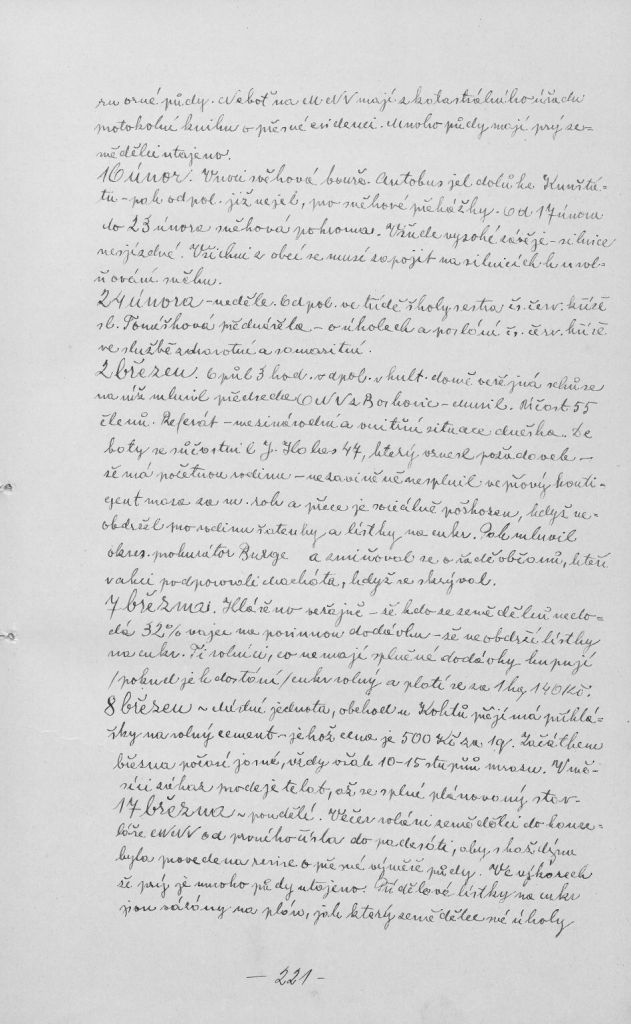 ru orné půdy. Neboť na MNV mají z katastrálního úřadu
protokolní knihu o přesné evidenci. Mnoho půdy mají prý ze-
mědělci utajeno.
16 únor. V noci sněhová bouře. Autobus jel dolů ke Kunštá-
tu - pak odpol. již nejel, pro sněhové překážky. Od 17 února
do 23 února sněhová pohroma. Všude vysoké závěje - silnice
nesjízdné. Všichni z obcí se musí zapojit na silnicích k uvol-
ňování sněhu.
24 února - neděle. Odpol. ve třídě školy sestra čs. červ. kříže
sl. Tomášková přednášela - o úkolech a poslání čs. červ. kříže
ve službě zdravotní a samaritní.
2 březen. O půl 3 hod. odpol. v kult. domě veřejná schůze
na níž mluvil předseda ONV z Boskovic - Musil. Účast 55
členů. Referát - mezinárodní a vnitřní situace dneška. De
baty se súčastnil J. Hakas 47, který vznesl požadavek -
že má početnou rodinu - nezaviněně nesplnil vepřový konti-
gent masa za m. rok a přece je sociálně poškozen, když ne-
obdržel pro rodinu šatenky a lístky na cukr. Pak mluvil
okres. prokurátor Burge a zmiňoval se o řadě občanů, kteří
v akci podporovali Macháta, když se skrýval.
7 března. Hlášeno veřejně - že kdo ze zemědělců nedo-
dá 32% vajec na povinnou dodávku - že neobdrží lístky
na cukr. Ti rolníci, co nemají splněné dodávky kupují
/pokud je k dostání/ cukr volný a platí se za 1 kg 140 Kč.
8 březen - Lidní jednota, obchod u Kolítů přijímá přihlá-
šky na volný cement - jehož cena je 500 Kč za 1 q. Začátkem
března počasí jasné, vždy však 10-15 stupňů mrazu. V mě-
síci zákaz prodeje telat, až se splní plánovaný stav.
17 března - pondělí. Večer voláni zemědělci do kance-
láře MNV od prvního čísla do padesáti, aby s každým
byla provedena revise o přesné výměře půdy. Ve výkazech
že prý je mnoho půdy utajeno. Přídělové lístky na cukr
jsou vázány na plán, jak který zemědělec své úkoly
- 221 -